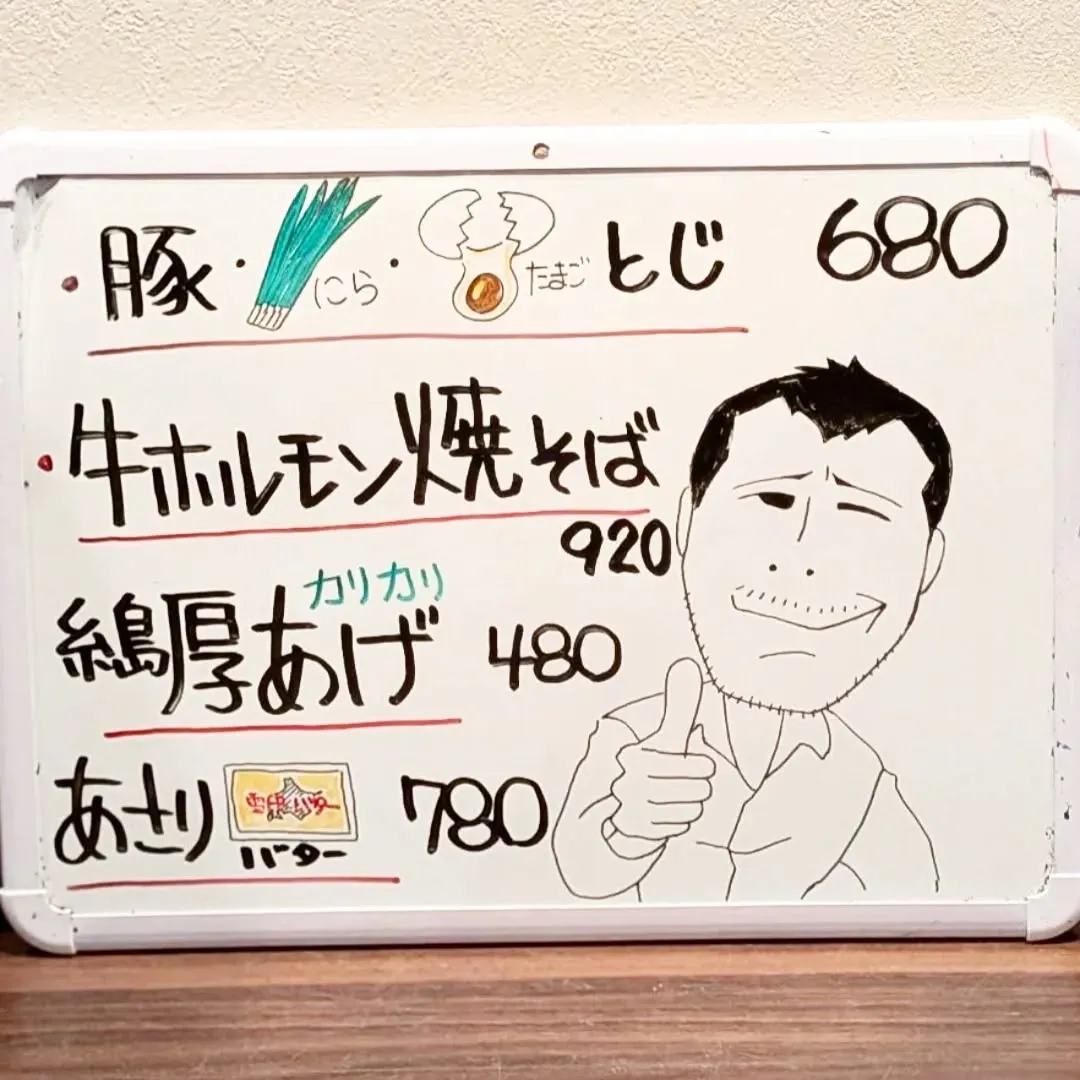 ・豚・にら・たまごとじ 680
・牛ホルモン焼そば
920
カリカリ
絹厚あげ 480
あさりバター 780